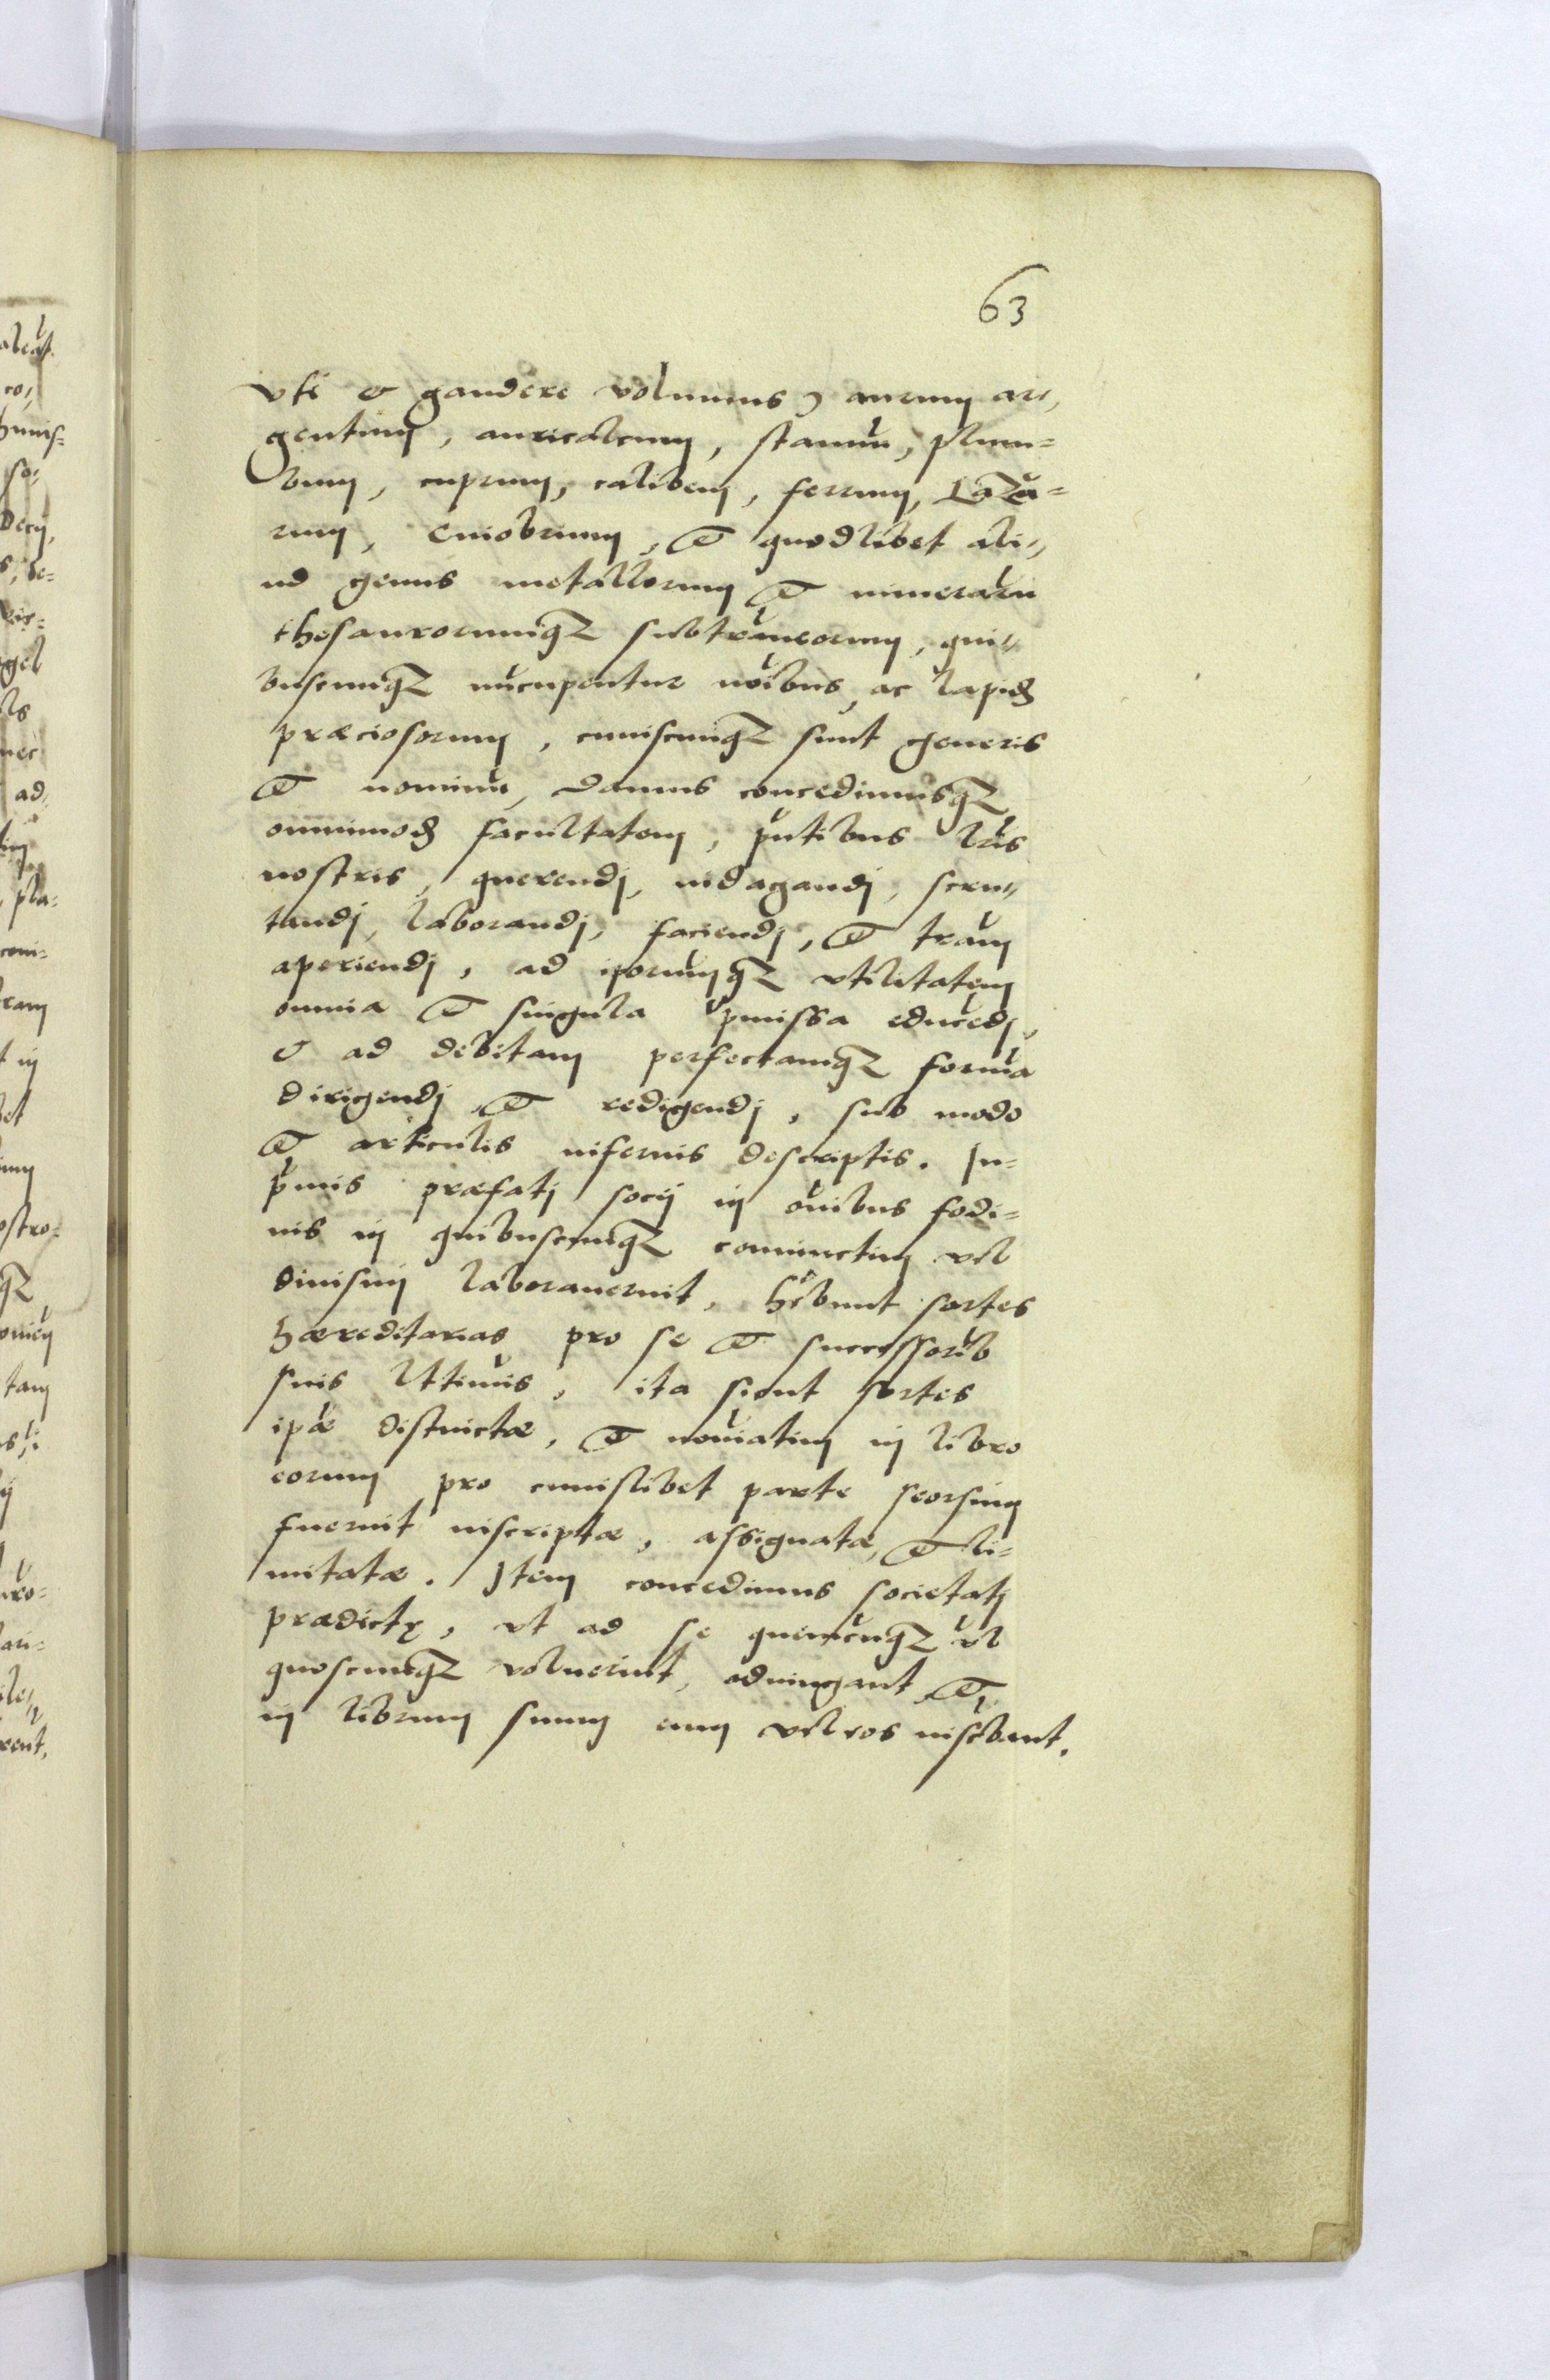 63
vti & gaudere volumus) aurum ar„
gentum, auricalcum, stannū, plum=
bum, cuprum, calibem, ferrum, Lazu=
rium, Cinobrium, & quodlibet ali„
ud genus metallorum & mineraliū
thesaurorumqz subtraneorum, qui„
buscumqz nūcupentur noībus, ac lapidū
præciosorum, cuiuscumqz sunt generis
& nominū, damus concedimusqz
omnimodā facultatem, pntibus lris
nostris, querendj, indagandj, scru„
tandj, laborandj, faciendj, & tram
aperiendj, ad ipsorumqz vtilitatem
omnia & singula pmissa educēdj,
& ad debitam perfectamqz formā
dirigendj & redigendj, sub modo
& articulis infernis descriptis. In=
pmis præfatj socij in oībus fodi=
nis in quibuscumqz coniunctim vel
diuisim laborauerint, hēbunt sortes
hæreditarias pro se & successorib
suis lttimis, ita sicut sortes
ipæ distinctæ, & noīatim in libro
eorum pro cuiuslibet parte seorsim
fuerint inscriptæ, assignatæ, & li=
mitatæ. Item concedimus societatj
prædictę, vt ad se quemcūqz vl
quoscumqz voluerint, adiungant &
in librum suum eum vel eos inscbant.